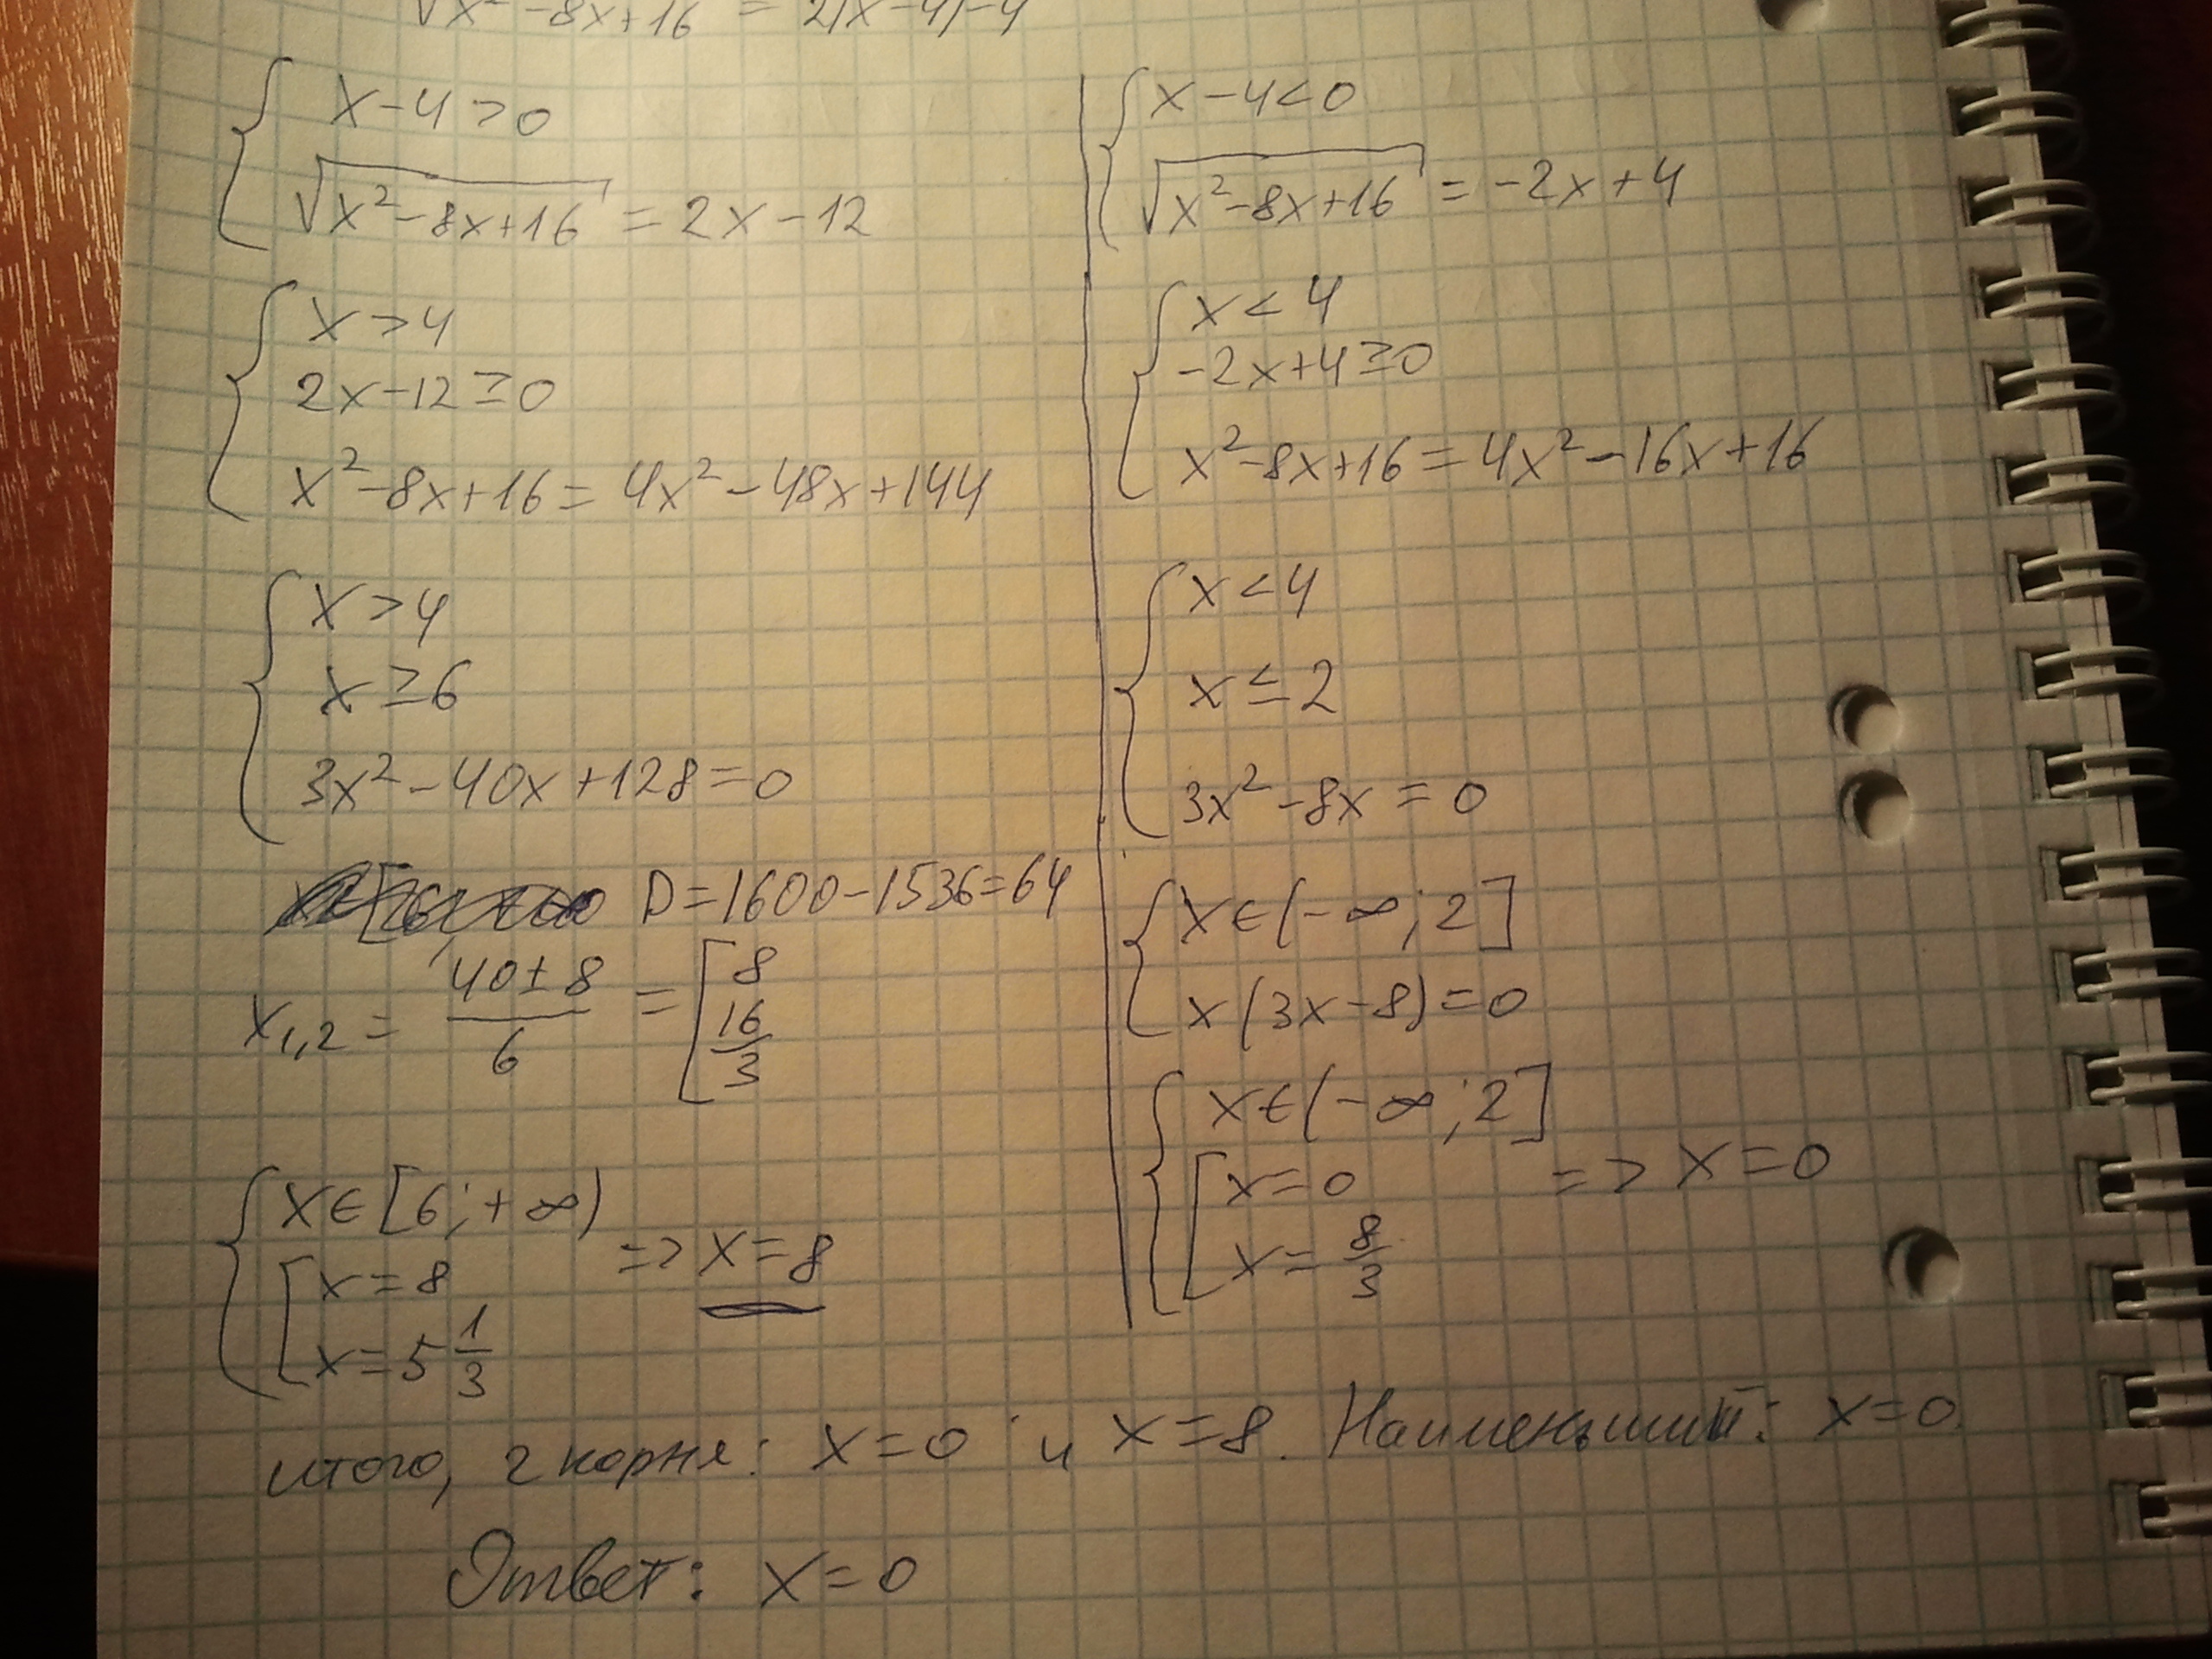 √x²-8x+16 = 2|x-4|-4
{ x-4>0
√x²-8x+16 = 2x-12
{ x>4
2x-12≥0
x²-8x+16=4x²-48x+144
{ x>4
x≥6
3x²-40x+128=0
D=1600-1536=64
x₁,₂ = (40±8)/6 = [ 8
16/3
{ x∈[6;+∞)
[ x=8
x=5 1/3
=> x=8
{ x-4<0
√x²-8x+16 = -2x+4
{ x<4
-2x+4≥0
x²-8x+16=4x²-16x+16
{ x<4
x≤2
3x²-8x=0
{ x∈(-∞;2]
x(3x-8)=0
{ x∈(-∞;2]
[ x=0
x=8/3
=> x=0
итого, 2 корня: x=0 и x=8. Наименьший: x=0.
Ответ: x=0